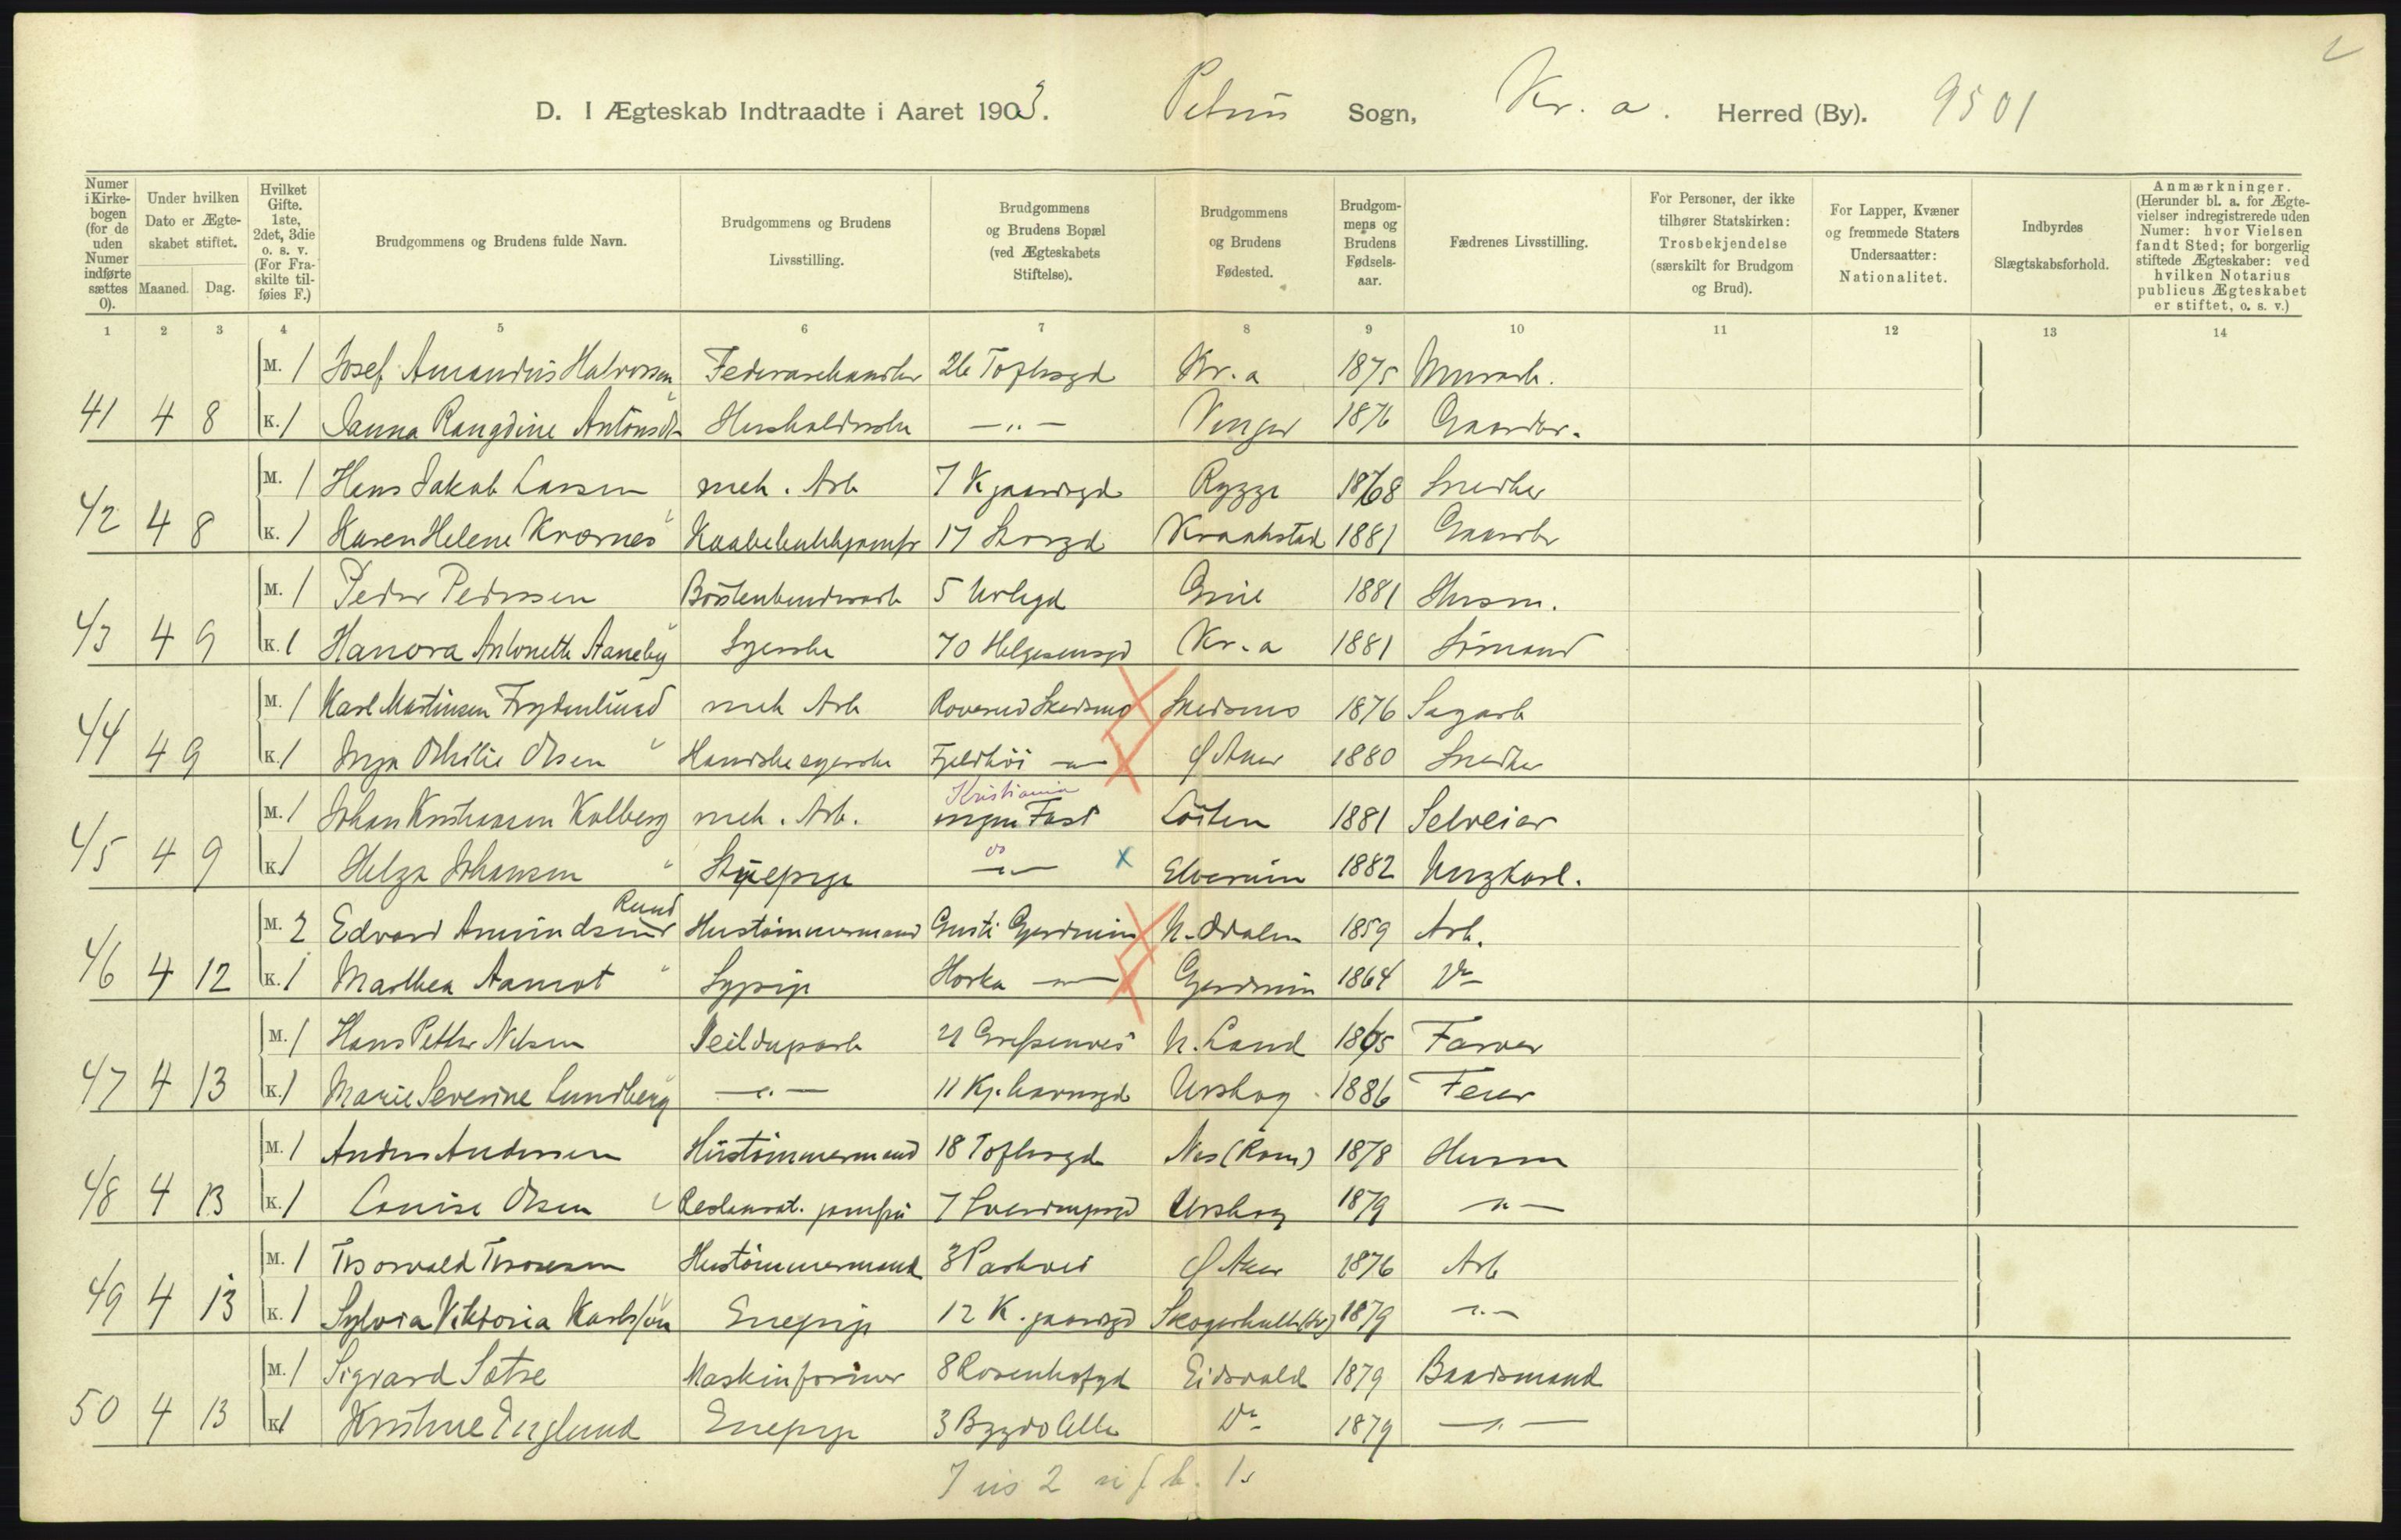 D. I Ægteskab Indtraadte i Aaret 1903. Petrus Sogn, Kr.a. Herred (By). 9501
Numer i Kirkebogen (for de uden Numer indførte sættes 0).
Under hvilken Dato er Ægteskabet stiftet.
Maaned.
Dag.
Hvilket Gifte. 1ste, 2det, 3die o. s. v. (For Fraskilte tilføies F.)
Brudgommens og Brudens fulde Navn.
Brudgommens og Brudens Livsstilling.
Brudgommens og Brudens Bopæl (ved Ægteskabets Stiftelse).
Brudgommens og Brudens Fødested.
Brudgommens og Brudens Fødselsaar.
Fædrenes Livsstilling.
For Personer, der ikke tilhører Statskirken: Trosbekjendelse (særskilt for Brudgom og Brud).
For Lapper, Kvæner og fremmede Staters Undersaatter: Nationalitet.
Indbyrdes Slægtskabsforhold.
Anmærkninger. (Herunder bl. a. for Ægtevielser indregistrerede uden Numer: hvor Vielsen fandt Sted; for borgerlig stiftede Ægteskaber: ved hvilken Notarius publicus Ægteskabet er stiftet, o. s. v.)
1 2 3 4 5 6 7 8 9 10 11 12 13 14
M. 1 Josef Amandus Halvorsen 26 Toftesgd Kr.a 1875 Murarb.
41 4 8 K. 1 Antonsdtr Husholderske —"— 1876 Gaardbr.
M. 1 Hans Jakob Larsen mek. Arb 7 Kjaardsgd Rygge 1868 Snedker
42 4 8 K. 1 Karen Helene Krosnes 17 Storgd Kraakstad 1881 Gaardbr
M. 1 Peder Pedersen Börstenbinderarb 5 Urtegd Grue 1881 Husm.
43 4 9 K. 1 Hanora Antonette Aaneby Syerske 70 Helgesensgd Kr.a 1881 Sömand
M. 1 Karl Martinsen Frydenlund mek Arb Skedsmo Skedsmo 1876 Sagarb
44 4 9 K. 1 Inga Othilie Olsen Handskesyerske Fjeldhöi —"— Ø Aker 1880 Snedker
Kristiania
M. 1 Johan Kristiansen Kolberg mek. Arb. ingen Fast Löiten 1881 Selveier
do
45 4 9 K. 1 Helga Johansen Stuepige —"— x Elverum 1882 Murkarl.
Ruud
M. 2 Edvard Amundsen Hustömmermand Gjerdrum N. Odalen 1859 Arb.
46 4 12 K. 1 Marthea Aamot Sypige —"— Gjerdrum 1864 Do
M. 1 Hans Petter Nilsen Seildugsarb 21 Grefsenvei N. Land 1865 Farver
47 4 13 K. 1 Marie Severine Lundberg —"— 11 Urskog 1886 Feier
M. 1 Anders Andersen Hustömmermand 18 Toftesgd Nes (Rom) 1878 Husm
48 4 13 K. 1 Louise Olsen Restaurat. jomfru 7 Sverdrupsgd Urskog 1879 —"—
M. 1 Thorvald Thoresen Hustömmermand 3 Parkvei Ø Aker 1876 Arb
49 4 13 K. 1 Sylvia Viktoria Karlsson Enepige 12 K. jaardsgd 1879 —"—
M. 1 Sigvard Sætre Maskinformer 8 Rosenhofgd Eidsvold 1879 Baadsmand
50 4 13 K. 1 Kristine Englund Enepige 3 Bygdö Alle Do 1879 —"—